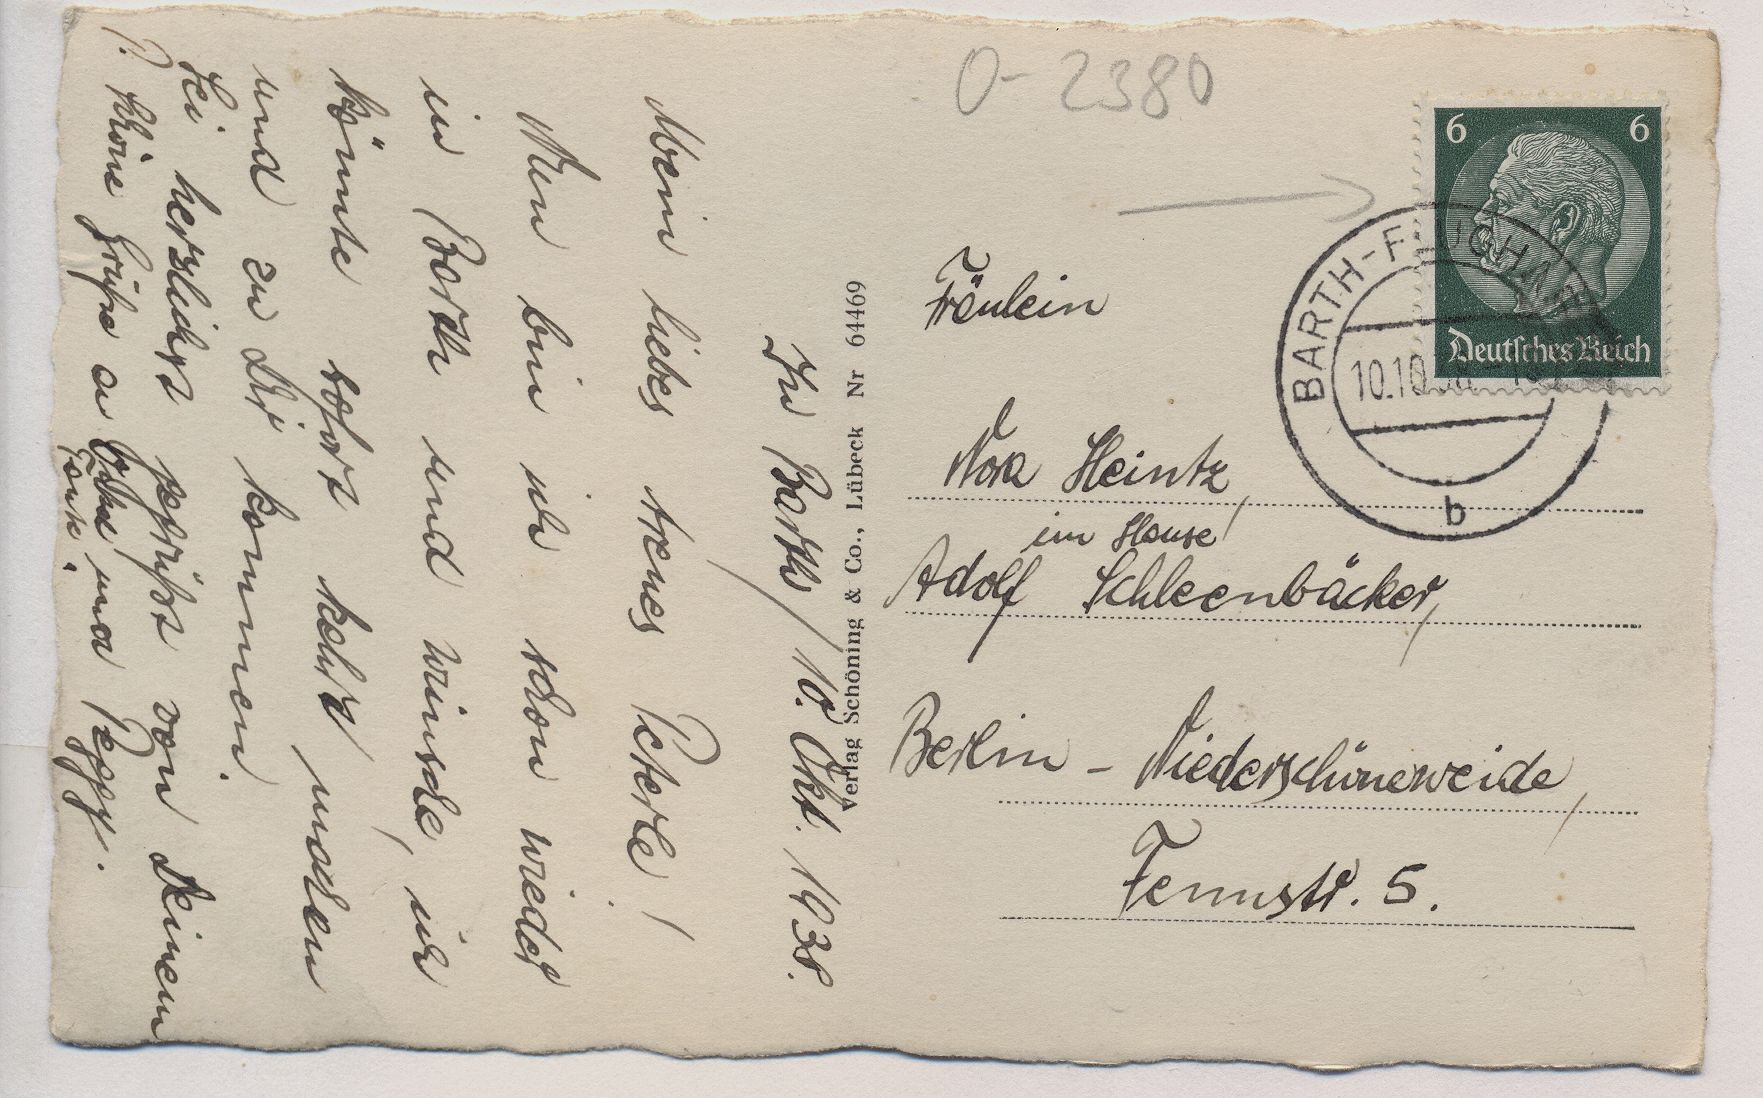 O-2380
6 6
Deutsches Reich
BARTH-FLUGHAFEN
10.10.38
b
Fräulein
Nora Heintz,
im Hause
Adolf Schleenbäcker,
Berlin - Niederschöneweide,
Fennstr. 5.
Verlag Schöning & Co., Lübeck Nr 64469
In Barth, 10. Okt. 1938.
Mein liebes treues Peterle!
Nun bin ich schon wieder
in Barth und wünsche, ich
könnte sofort kehrt machen
und zu Dir kommen.
Sei herzlichst gegrüßt von Deinem
Peggy.
P. Schöne Grüße a. Onkel und
Tante.